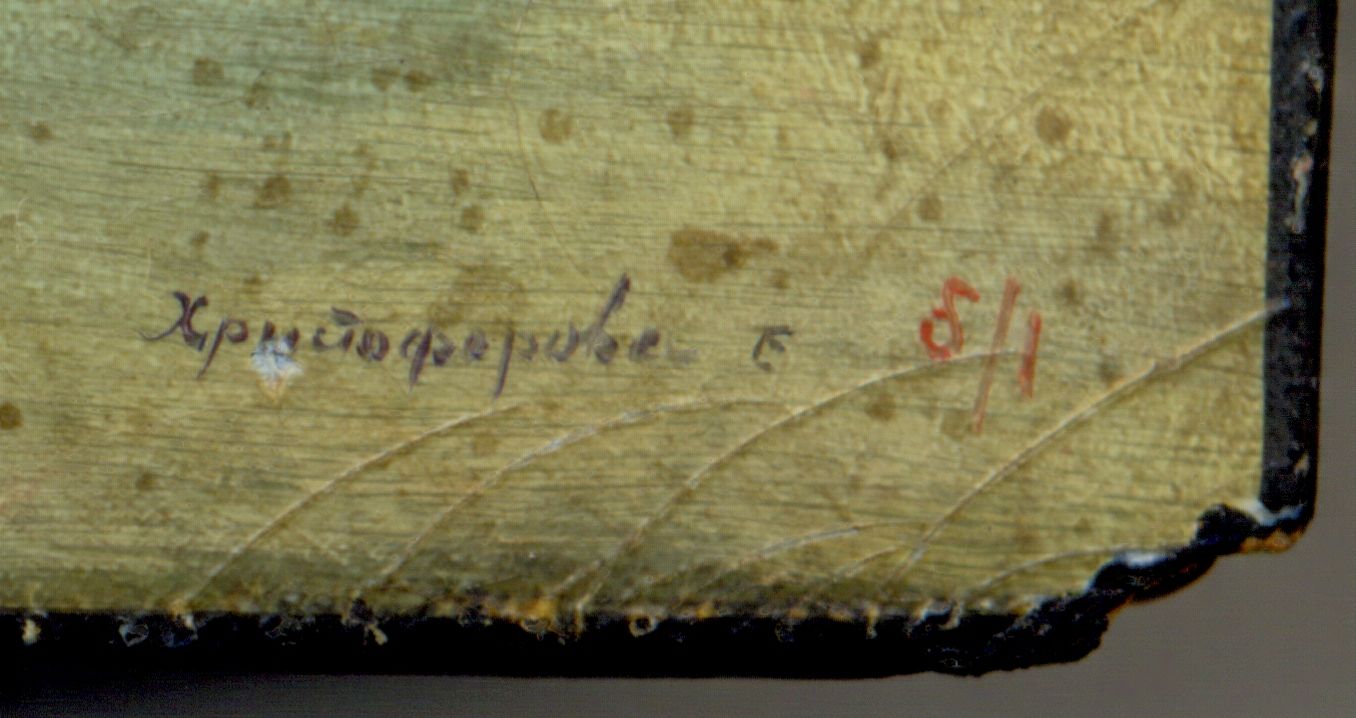 Христофорова Е б/1